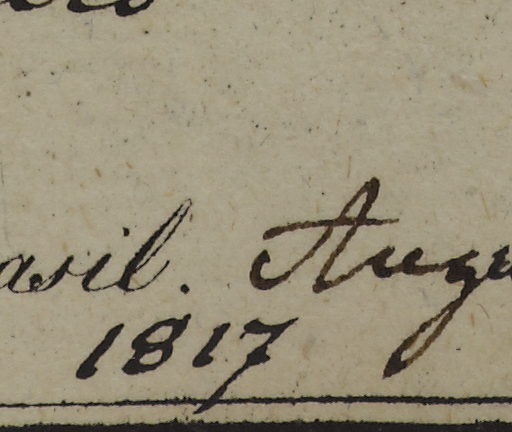 asil. Augu
1817